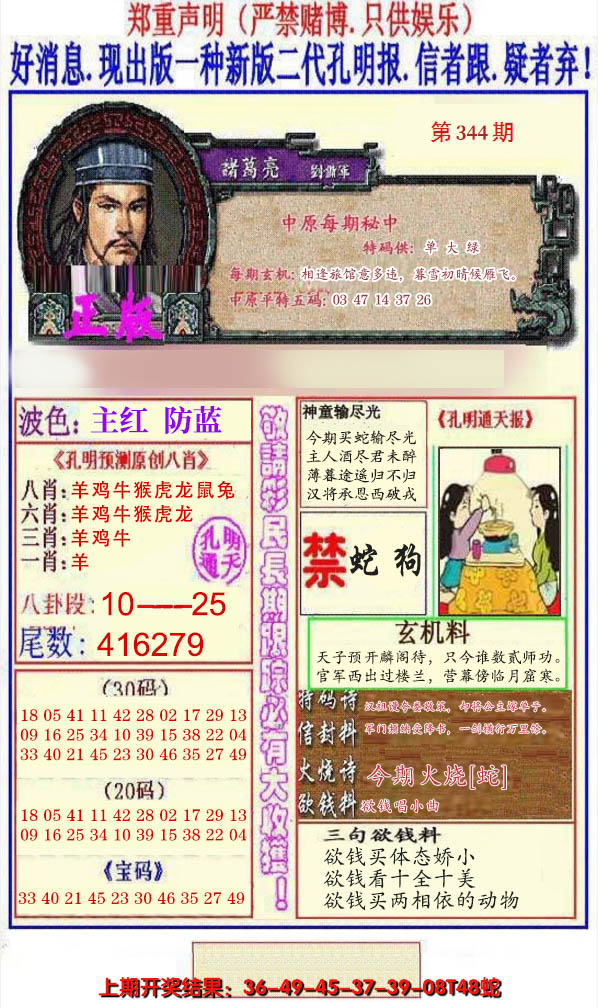 郑重声明（严禁赌博.只供娱乐）
好消息.现出版一种新版二代孔明报.信者跟.疑者弃！
第344期
諸葛亮 劉備軍
中原每期秘中
特码供: 单 大 绿
每期玄机: 相逢旅馆意多违，暮雪初晴候雁飞。
中原平特五码: 03 47 14 37 26
正版
波色: 主红 防蓝
《孔明预测原创八肖》
八肖:羊鸡牛猴虎龙鼠兔
六肖:羊鸡牛猴虎龙
三肖:羊鸡牛
一肖:羊
孔明通天
八卦段: 10——25
尾数: 416279
(30码)
18 05 41 11 42 28 02 17 29 13
09 16 25 34 10 39 15 38 22 04
33 40 21 45 23 30 46 35 27 49
(20码)
18 05 41 11 42 28 02 17 29 13
09 16 25 34 10 39 15 38 22 04
《宝码》
33 40 21 45 23 30 46 35 27 49
敬請彩民長期跟踪必有大收獲！
神童输尽光
今期买蛇输尽光
主人酒尽君未醉
薄暮途遥归不归
汉将承恩西破戎
《孔明通天报》
禁 蛇 狗
玄机料
天子预开麟阁待，只今谁数贰师功。
官军西出过楼兰，营幕傍临月窟寒。
特码诗
信封料
军门频纳受降书，一剑横行万里馀。
火烧诗 今期火烧[蛇]
欲钱料 欲钱唱小曲
三句欲钱料
欲钱买体态娇小
欲钱看十全十美
欲钱买两相依的动物
上期开奖结果: 36-49-45-37-39-08T48蛇